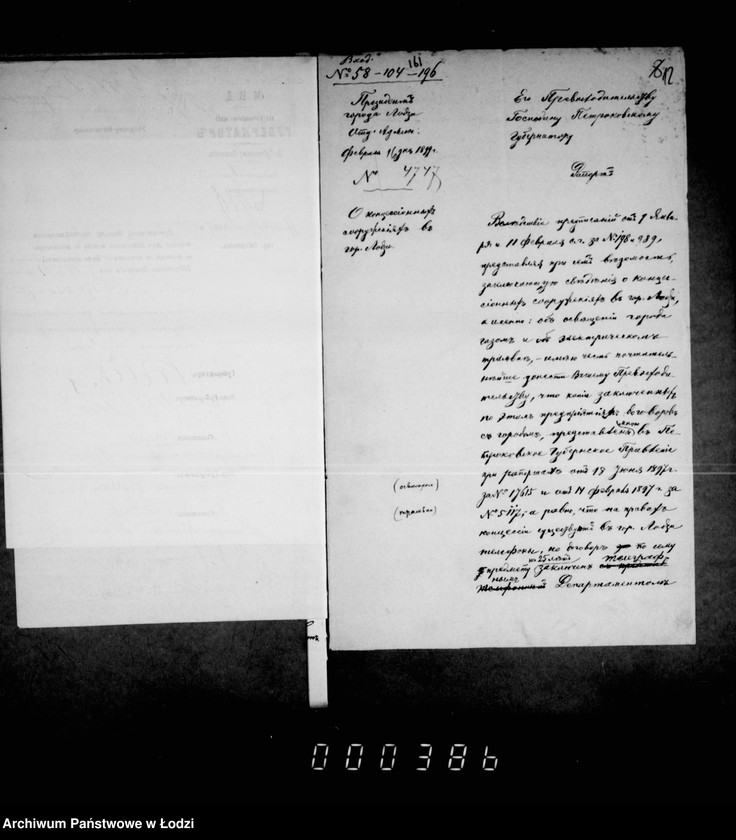 Вход.
161
№ 58-104-196
Президентъ
города Лодзи
Февраля 1899 г.
№ 4747
О концессіонныхъ
сооруженіяхъ въ
гор. Лодзи.
812
Его Превосходительству
Господину Петроковскому
Губернатору
Рапортъ
Вслѣдствіе предписаній отъ 7 Янва-
ря и 11 Февраля с.г. за № 198 и 989,
представляя при семъ вѣдомость,
заключающую свѣдѣнія о конце-
сіонныхъ сооруженіяхъ въ гор. Лодзи,
а именно: объ освѣщеніи города
газомъ и объ электрическомъ
трамваѣ, - имѣю честь почтитель-
нѣйше донести Вашему Превосходи-
тельству, что копіи заключенныхъ
по этимъ предпріятіямъ договоровъ
съ городомъ, представлены въ Пе-
троковское Губернское Правленіе
при рапортахъ отъ 18 Іюня 1897 г.
за № 17615 и отъ 14 Февраля 1897 г. за
№ 5117; а равно, что на правахъ
концессіи существуютъ въ гор. Лодзи
телефоны, но договоръ по сему
на 25 лѣтъ
предмету заключенъ Телеграф-
нымъ Департаментомъ
(освѣщеніе)
(трамваи)
000386
Archiwum Państwowe w Łodzi